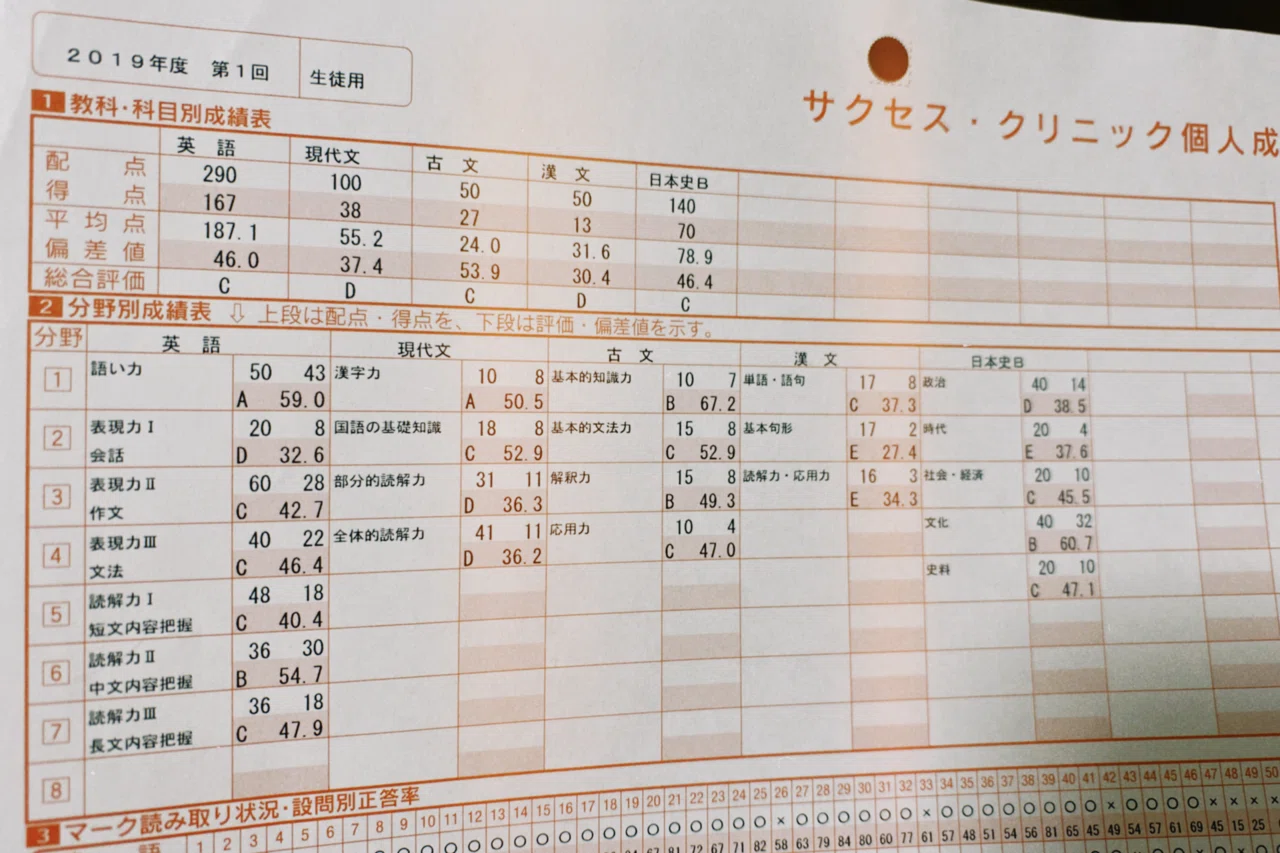 2019年度 第1回 生徒用
サクセス・クリニック個人成
1 教科・科目別成績表
英語 現代文 古文 漢文 日本史B
配点 290 100 50 50 140
得点 167 38 27 13 70
平均点 187.1 55.2 24.0 31.6 78.9
偏差値 46.0 37.4 53.9 30.4 46.4
総合評価 C D C D C
2 分野別成績表 ⇩ 上段は配点・得点を、下段は評価・偏差値を示す。
分野 英語 現代文 古文 漢文 日本史B
1 語い力 50 43 漢字力 10 8 基本的知識力 10 7 単語・語句 17 8 政治 40 14
A 59.0 A 50.5 B 67.2 C 37.3 D 38.5
2 表現力Ⅰ 20 8 国語の基礎知識 18 8 基本的文法力 15 8 基本句形 17 2 時代 20 4
会話 D 32.6 C 52.9 C 52.9 E 27.4 E 37.6
3 表現力Ⅱ 60 28 部分的読解力 31 11 解釈力 15 8 読解力・応用力 16 3 社会・経済 20 10
作文 C 42.7 D 36.3 B 49.3 E 34.3 C 45.5
4 表現力Ⅲ 40 22 全体的読解力 41 11 応用力 10 4 文化 40 32
文法 C 46.4 D 36.2 C 47.0 B 60.7
5 読解力Ⅰ 48 18 史料 20 10
短文内容把握 C 40.4 C 47.1
6 読解力Ⅱ 36 30
中文内容把握 B 54.7
7 読解力Ⅲ 36 18
長文内容把握 C 47.9
8
3 マーク読み取り状況・設問別正答率
1 2 3 4 5 6 7 8 9 10 11 12 13 14 15 16 17 18 19 20 21 22 23 24 25 26 27 28 29 30 31 32 33 34 35 36 37 38 39 40 41 42 43 44 45 46 47 48 49 50
○ ○ ○ ○ ○ ○ ○ ○ ○ ○ ○ ○ ○ ○ ○ ○ ○ ○ × ○ ○ ○ ○ ○ ○ × ○ ○ ○ ○ ○ ○ ○ ○ × ○ ○ ○ ○ × × × ×
81 72 67 71 82 58 63 79 84 80 60 77 61 57 48 51 54 56 81 65 45 49 54 57 61 69 45 15 25